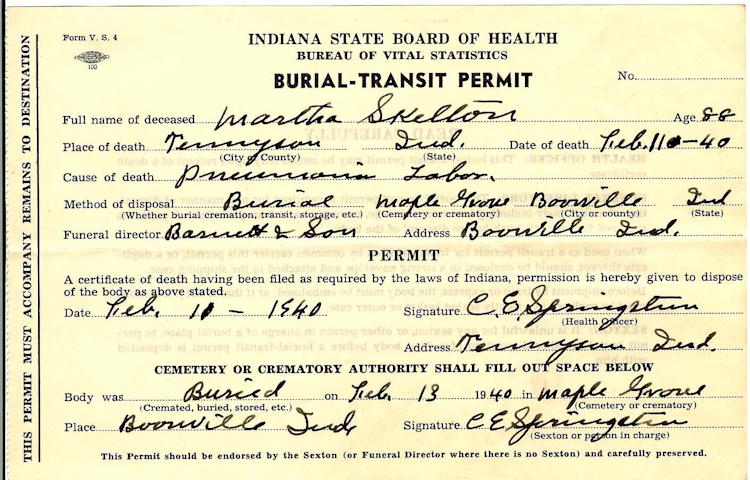 Form V. S. 4
100
INDIANA STATE BOARD OF HEALTH
BUREAU OF VITAL STATISTICS
BURIAL-TRANSIT PERMIT
No.
Full name of deceased Martha Skelton Age 88
Place of death Tennyson Ind. Date of death Feb. 10-40
(City of County) (State)
Cause of death Pneumonia Lobar.
Method of disposal Burial Maple Grove Boonville Ind
(Whether burial cremation, transit, storage, etc.) (Cemetery or crematory) (City or county) (State)
Funeral director Barnett & Son Address Boonville Ind.
PERMIT
A certificate of death having been filed as required by the laws of Indiana, permission is hereby given to dispose
of the body as above stated.
Date Feb. 10 - 1940 Signature C. E. Springstun
(Health Officer)
Address Tennyson Ind.
CEMETERY OR CREMATORY AUTHORITY SHALL FILL OUT SPACE BELOW
Body was Buried on Feb. 13 1940 in Maple Grove
(Cremated, buried, stored, etc.) (Cemetery or crematory)
Place Boonville Ind. Signature C E Springstun
(Sexton or person in charge)
This Permit should be endorsed by the Sexton (or Funeral Director where there is no Sexton) and carefully preserved.
THIS PERMIT MUST ACCOMPANY REMAINS TO DESTINATION